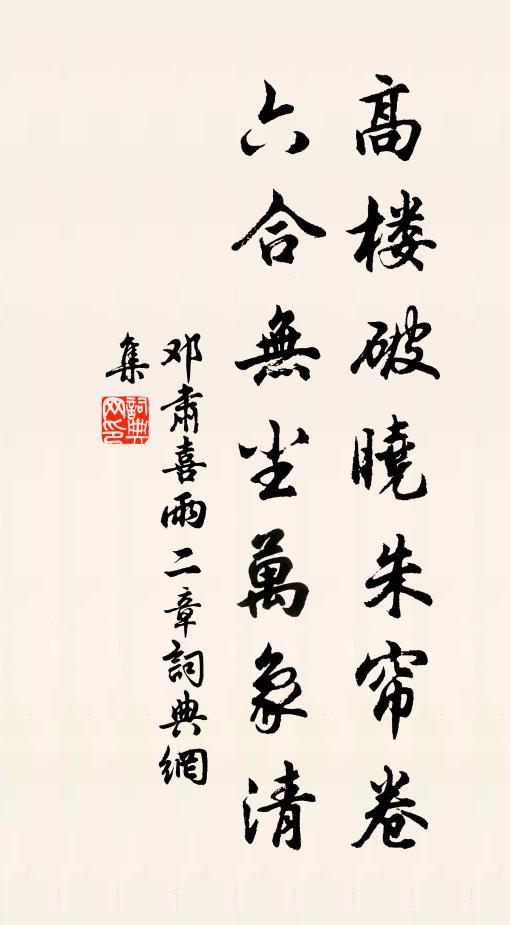 高楼破曉朱帘卷
六合無尘萬象清
邓肅喜雨二章詞典網
集
詞典網印